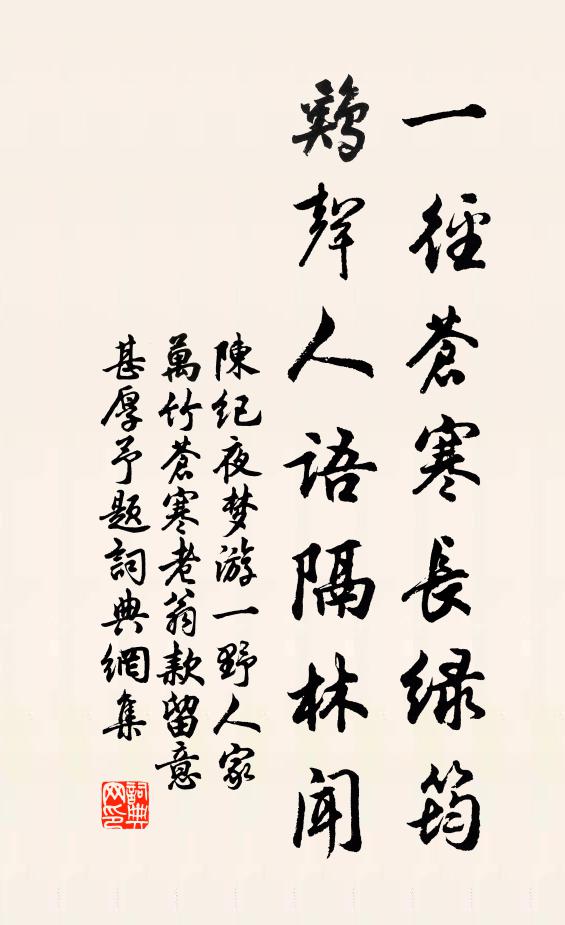 一徑蒼寒長緑筠
鷄聲人語隔林聞
陳紀夜梦游一野人家
萬竹蒼寒老翁款留意
甚厚予題詞典網集
詞典网印